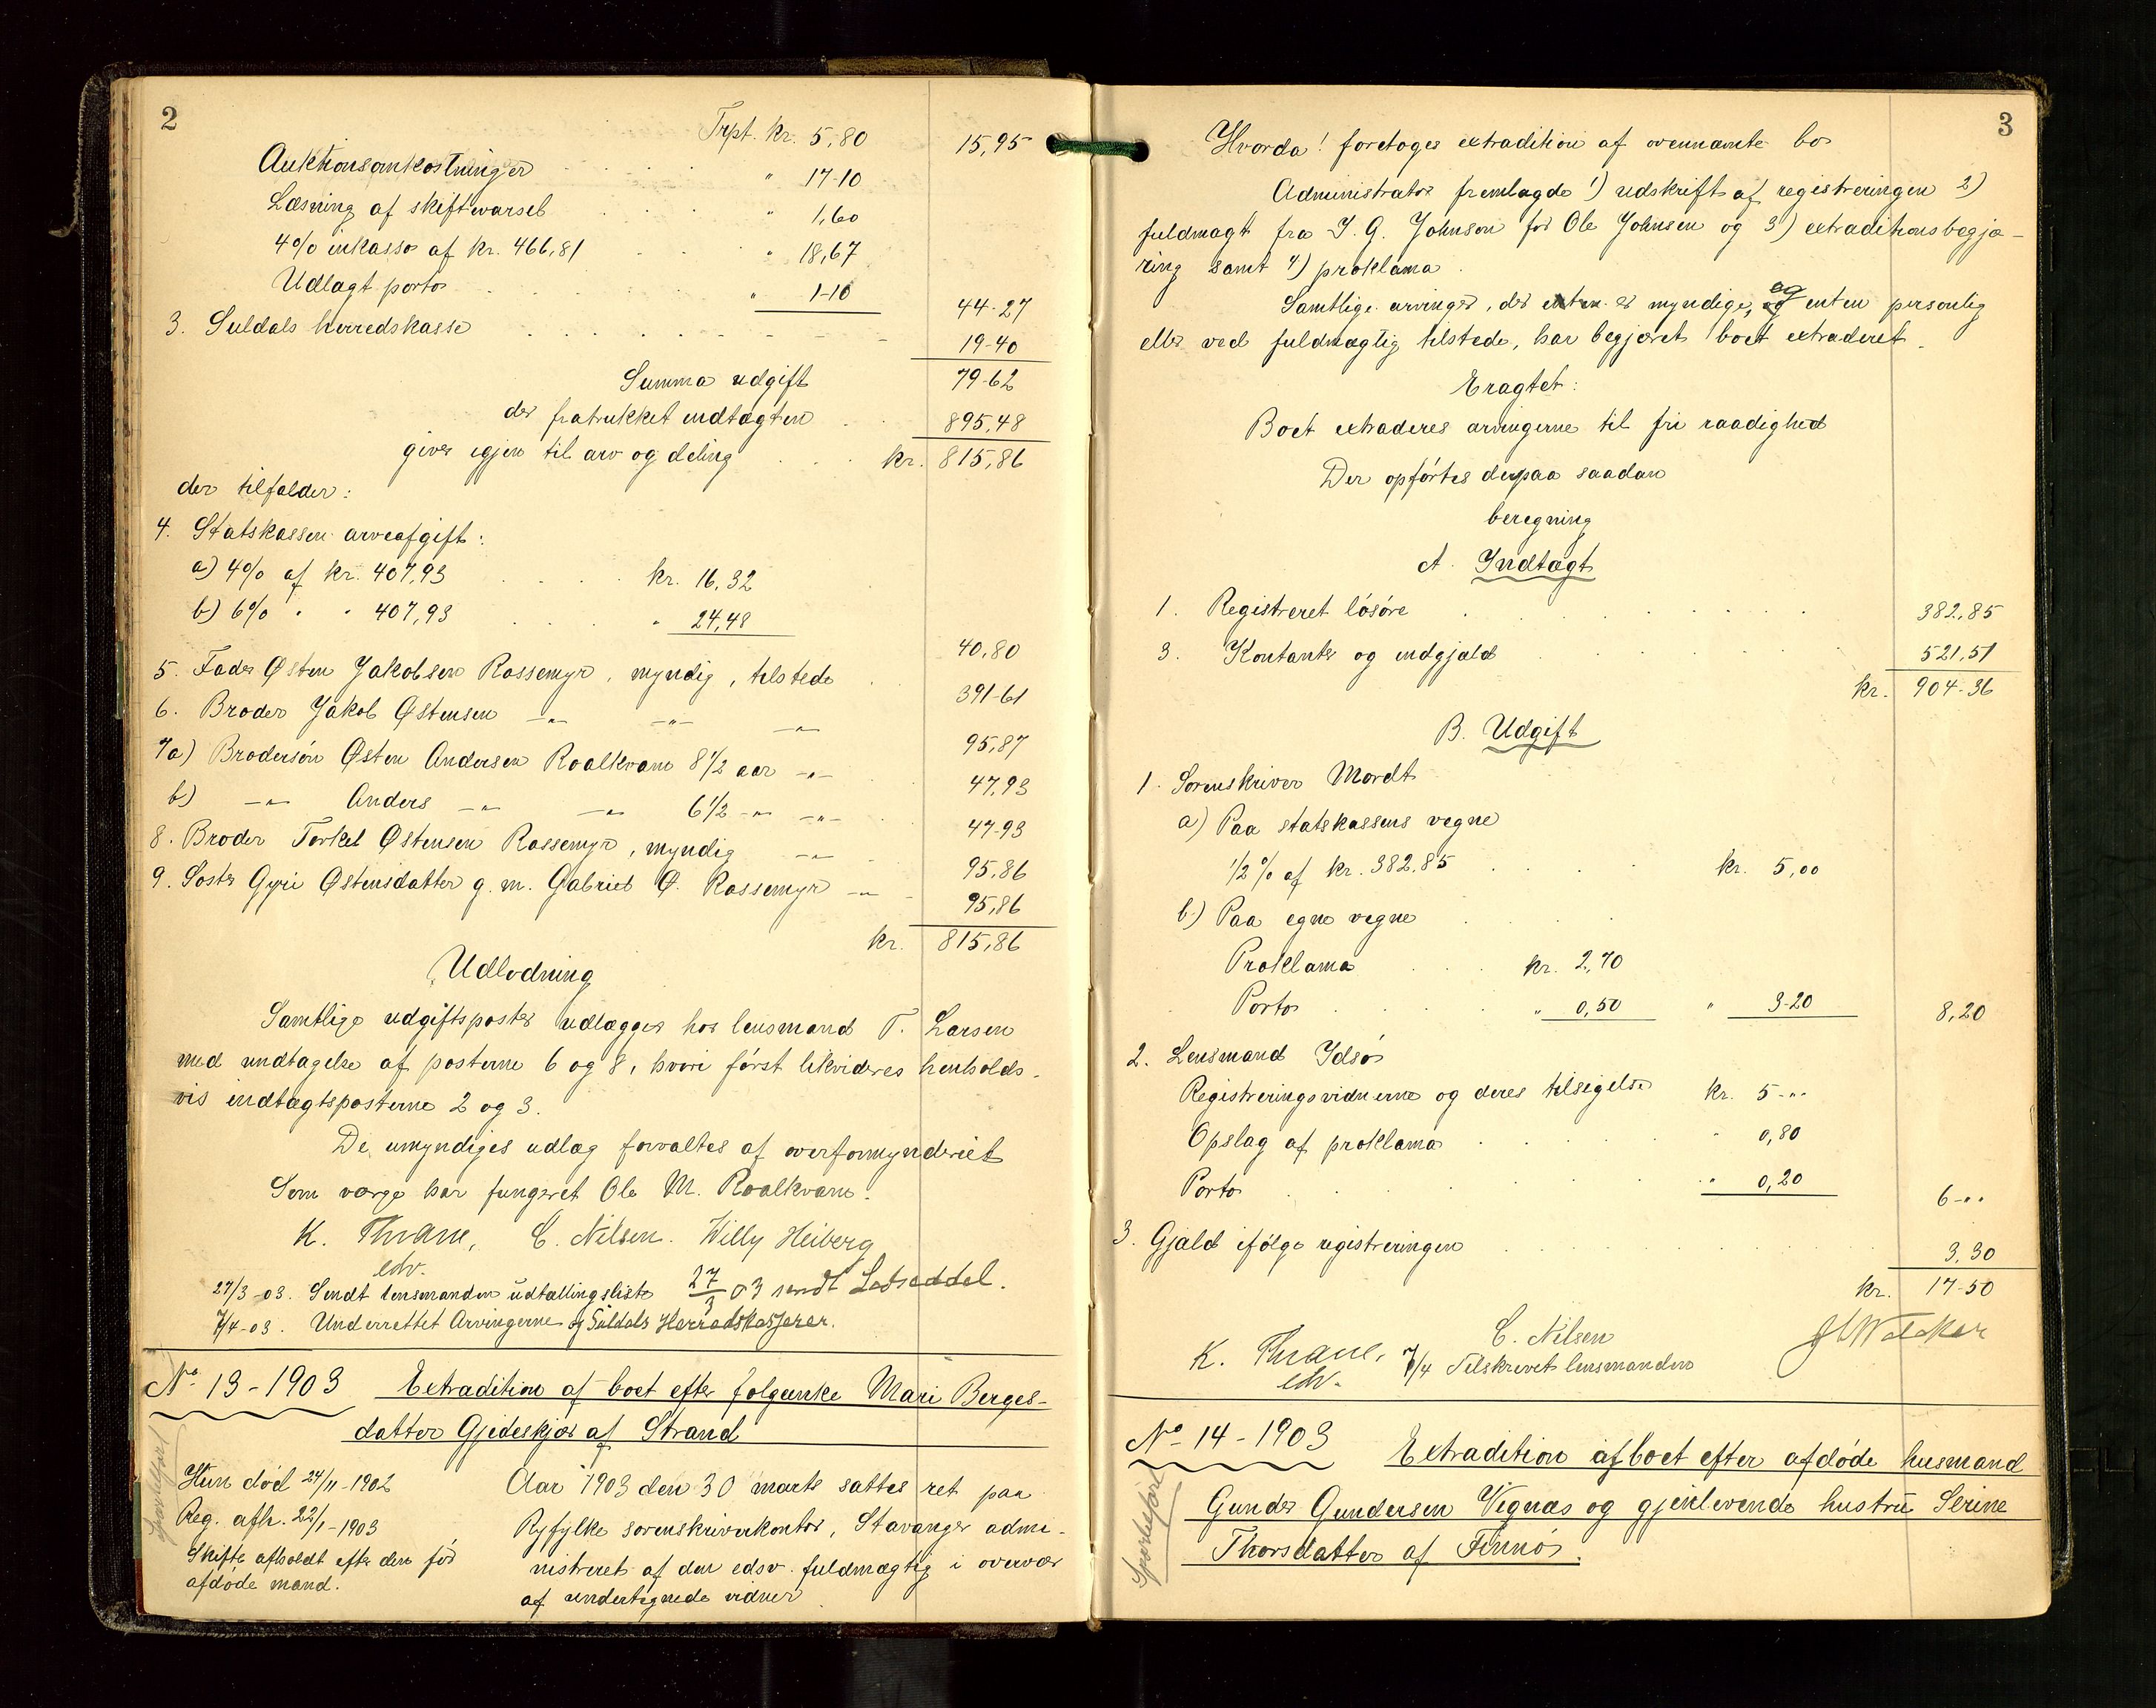 2
Trpt. kr. 5,80 15,95
Auktionsomkostninger " 17-10
Læsning af skiftevarsel " 1,60
4% inkasso af kr. 466,81 " 18,67
Udlagt porto " 1-10 44-27
3. Suldals herredskasse 19-40
Summa udgift 79-62
der fratrukket indtægten 895,48
giver igjen til arv og deling kr. 815,86
der tilfalder:
4. Statskassen arveafgift:
a) 4% af kr. 407,93 kr. 16,32
b) 6% " " 407,93 " 24,48 40,80
5. Fader Østen Jakobsen Rossemyr, myndig, tilstede 391-61
6. Broder Jakob Østensen -"- -"- -"- 95,87
7a) Brodersøn Østen Andersen Roalkvam 8 1/2 aar -"- 47,93
b) -"- Anders -"- -"- 6 1/2 -"- -"- 47-93
8. Broder Torkel Østensen Rossemyr, myndig -"- 95,86
9. Søster Gyri Østensdatter g. m. Gabriel O. Rossemyr -"- 95,86
kr. 815,86
Udlodning
Samtlige udgiftsposter udlægges hos lensmand T. Larsen
med undtagelse af posterne 6 og 8, hvori først likvideres henholds-
vis indtægtsposterne 2 og 3.
De umyndiges udlæg forvaltes af overformynderiet
Som værge har fungeret Ole M. Roalkvam.
K. Thrane, C. Nilsen. Willy Heiberg
edv.
27/3-03. Sendt lensmanden udtællingsliste 27/3 03 sendt Lodseddel.
7/4-03. Underrettet Arvingerne og Suldals Herredskasserer.
No 13-1903 Extradition af boet efter folgeenke Mari Berges-
datter Gjedeskjær af Strand
Hun død 24/11-1902
Reg. afh. 22/1-1903
Skifte afholdt efter den før
afdøde mand.
Aar 1903 den 30 marts sattes ret paa
Ryfylke sorenskriverkontor, Stavanger admi-
nistreret af den edsv. fuldmægtig i overvær
af undertegnede vidner
3
Hvorda! foretoges extradition af ovennævnte bo
Administrator fremlagde 1) udskrift af registreringen 2)
fuldmagt fra J. G. Johnson for Ole Johnsen og 3) extraditionsbegjæ-
ring samt 4) proklama.
Samtlige arvinger, der er myndige, og enten personlig
eller ved fuldmægtig tilstede, har begjæret boet extraderet.
Eragtet:
Boet extraderes arvingerne til fri raadighed
Der opførtes derpaa saadan
beregning
A. Indtægt
1. Registreret løsøre 382,85
3. Kontanter og indgjæld 521,51
kr. 904-36
B. Udgift
1. Sorenskriver Mordt
a) Paa statskassens vegne
1/2% af kr. 382,85 kr. 5,00
b) Paa egne vegne
Proklama kr. 2,70
Porto " 0,50 " 3-20 8,20
2. Lensmand Idsø
Registreringsvidnerne og deres tilsigelse kr. 5-"
Opslag af proklama " 0,80
Porto " 0,20 6-"
3. Gjæld ifølge registreringen 3,30
kr. 17-50
K. Thrane, C. Nilsen
edv. 7/4 Tilskrevet lensmanden
No 14-1903 Extradition af boet efter afdøde husmand
Gunder Gundersen Vignæs og gjenlevende hustru Serine
Thorsdatter af Finnø.